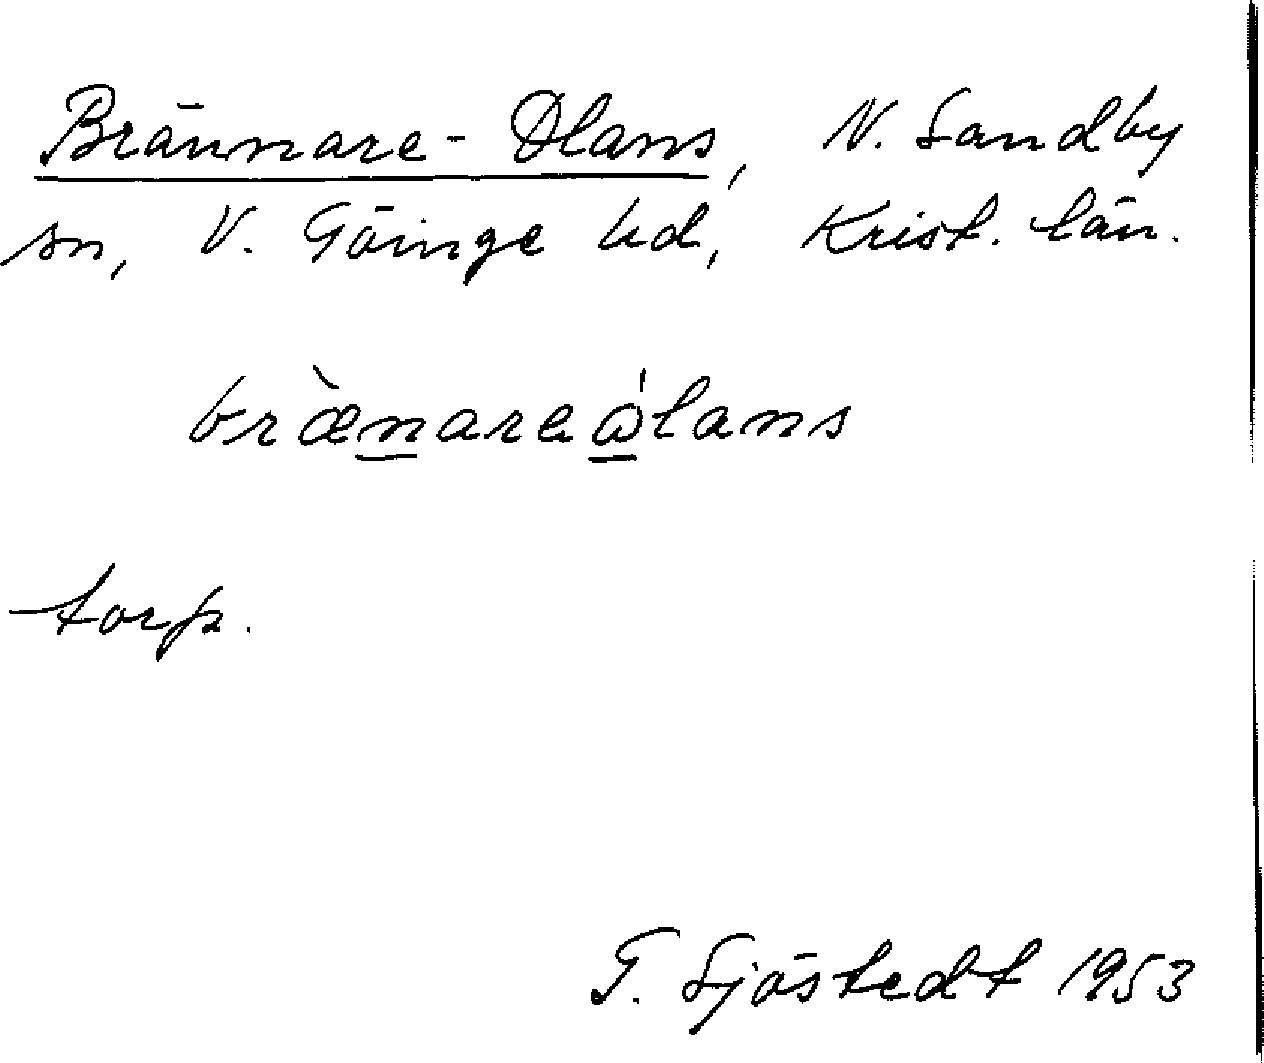 Brännare-Olans, N. Sandby
sn, V. Göinge hd, Krist. län.
bræ̀n̲areώ̲lans
torp.
G. Sjöstedt 1953